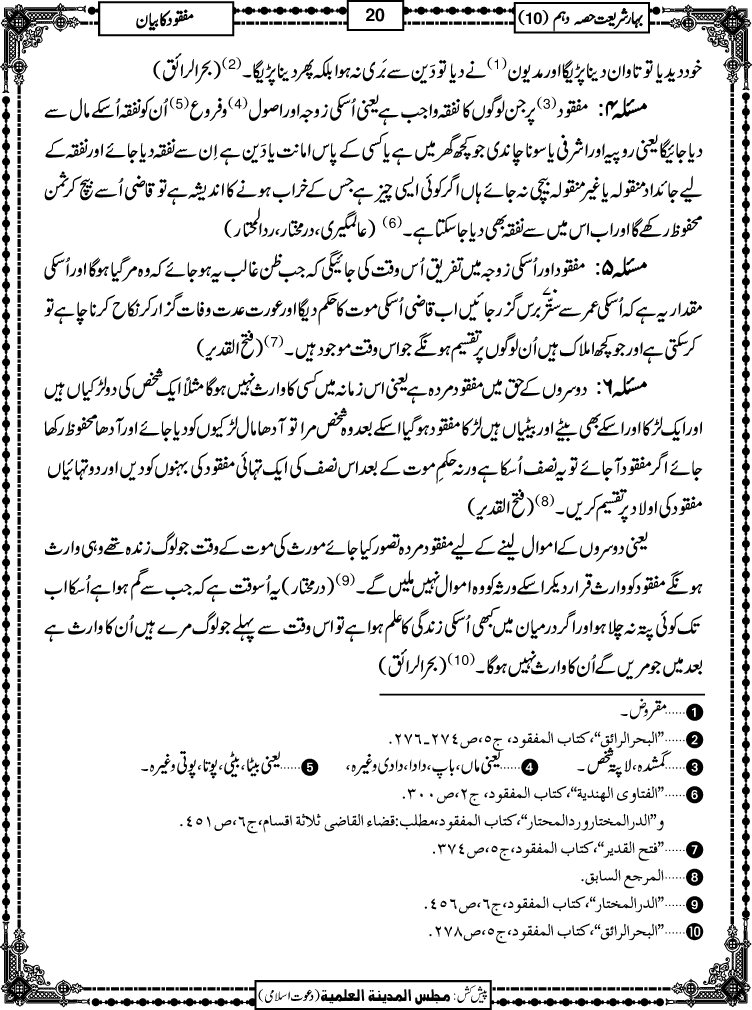 بہارِ شریعت حصہ دہم (10)
20
مفقود کا بیان
خود دیدیا تو تاوان دینا پڑیگا اور مدیون (1) نے دیا تو دَین سے بَری نہ ہوا بلکہ پھر دینا پڑیگا۔(2) (بحرالرائق)
مسئلہ ۴: مفقود (3) پر جن لوگوں کا نفقہ واجب ہے یعنی اُسکی زوجہ اور اصول (4) و فروع (5) اُن کو نفقہ اُسکے مال سے
دیا جائیگا یعنی روپیہ اور اشرفی یا سونا چاندی جو کچھ گھر میں ہے یا کسی کے پاس امانت یا دَین ہے اِن سے نفقہ دیا جائے اور نفقہ کے
لیے جائداد منقولہ یا غیر منقولہ بیچی نہ جائے ہاں اگر کوئی ایسی چیز ہے جس کے خراب ہونے کا اندیشہ ہے تو قاضی اُسے بیچ کر ثمن
محفوظ رکھے گا اور اب اس میں سے نفقہ بھی دیا جاسکتا ہے۔(6) (عالمگیری، درمختار، ردالمحتار)
مسئلہ ۵: مفقود اور اُسکی زوجہ میں تفریق اُس وقت کی جائیگی کہ جب ظن غالب یہ ہوجائے کہ وہ مرگیا ہوگا اور اُسکی
مقدار یہ ہے کہ اُسکی عمر سے ستّر ۷۰ برس گزر جائیں اب قاضی اُسکی موت کا حکم دیگا اور عورت عدت وفات گزار کر نکاح کرنا چاہے تو
کرسکتی ہے اور جو کچھ املاک ہیں اُن لوگوں پر تقسیم ہونگے جو اس وقت موجود ہیں۔(7) (فتح القدیر)
مسئلہ ۶: دوسروں کے حق میں مفقود مردہ ہے یعنی اس زمانہ میں کسی کا وارث نہیں ہوگا مثلاً ایک شخص کی دو لڑکیاں ہیں
اور ایک لڑکا اور اسکے بھی بیٹے اور بیٹیاں ہیں لڑکا مفقود ہوگیا اسکے بعد وہ شخص مرا تو آدھا مال لڑکیوں کو دیا جائے اور آدھا محفوظ رکھا
جائے اگر مفقود آجائے تو یہ نصف اُسکا ہے ورنہ حکم موت کے بعد اس نصف کی ایک تہائی مفقود کی بہنوں کو دیں اور دو تہائیاں
مفقود کی اولاد پر تقسیم کریں۔(8) (فتح القدیر)
یعنی دوسروں کے اموال لینے کے لیے مفقود مردہ تصور کیا جائے مورث کی موت کے وقت جو لوگ زندہ تھے وہی وارث
ہونگے مفقود کو وارث قرار دیکر اسکے ورثہ کو وہ اموال نہیں ملیں گے۔(9) (درمختار) یہ اُسوقت ہے کہ جب سے گم ہوا ہے اُسکا اب
تک کوئی پتہ نہ چلا ہو اور اگر درمیان میں کبھی اُسکی زندگی کا علم ہوا ہے تو اس وقت سے پہلے جو لوگ مرے ہیں اُن کا وارث ہے
بعد میں جو مریں گے اُن کا وارث نہیں ہوگا۔(10) (بحرالرائق)
1 ......مقروض۔
2 ......"البحرالرائق"، کتاب المفقود، ج٥، ص٢٧٤-٢٧٦.
3 ......گمشدہ، لاپتہ شخص۔ 4 ......یعنی ماں، باپ، دادا، دادی وغیرہ۔ 5 ......یعنی بیٹا، بیٹی، پوتا، پوتی وغیرہ۔
6 ......"الفتاوی الھندیة"، کتاب المفقود، ج٢، ص٣٠٠.
و"الدرالمختار وردالمحتار"، کتاب المفقود، مطلب: قضاء القاضی ثلاثة اقسام، ج٦، ص٤٥١.
7 ......"فتح القدیر"، کتاب المفقود، ج٥، ص٣٧٤.
8 ......المرجع السابق.
9 ......"الدرالمختار"، کتاب المفقود، ج٦، ص٤٥٦.
10 ......"البحرالرائق"، کتاب المفقود، ج٥، ص٢٧٨.
پیش کش: مجلس المدینة العلمیة (دعوتِ اسلامی)